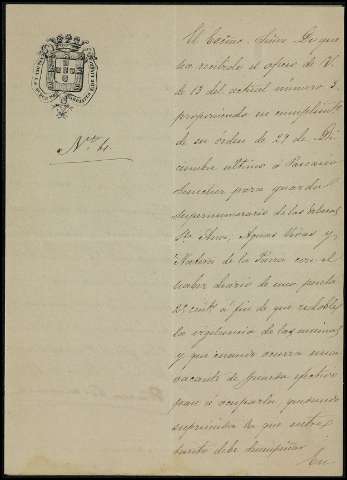 Núm. 61.
El Excmo. Señor Duque
ha recibido el oficio de V.
de 13 del actual número 3,
proponiendo en cumplimto
de su órden de 29 de Di-
ciembre último á Pascasio
Sanchez para guarda
supernumerario de las Dehesas
Sta. Ana, Aguas Vivas y
de la con el
haber diario de una peseta
25 cénts. á fin de que redoble
la vigilancia de las mismas
y que cuando ocurra una
vacante de guarda efectivo
pase á ocuparla, quedando
suprimida la que entre
tanto debe desempeñar.
En